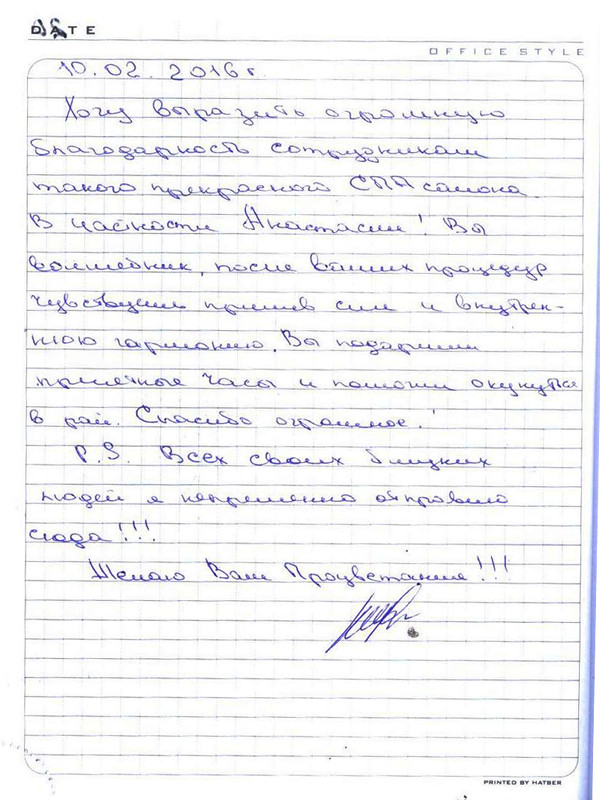 DATE
OFFICE STYLE
10.02.2016г.
Хочу выразить огромную
благодарность сотрудникам
такого прекрасного СПА салона.
В частности Анастасии! Вы
волшебник, после Ваших процедур
чувствуешь прилив сил и внутрен-
нюю гармонию. Вы подарили
приятные часы и помогли окунуться
в рай. Спасибо огромное!
P.S. Всех своих близких
людей я непременно отправлю
сюда!!!
Желаю Вам Процветания!!!
PRINTED BY HATBER